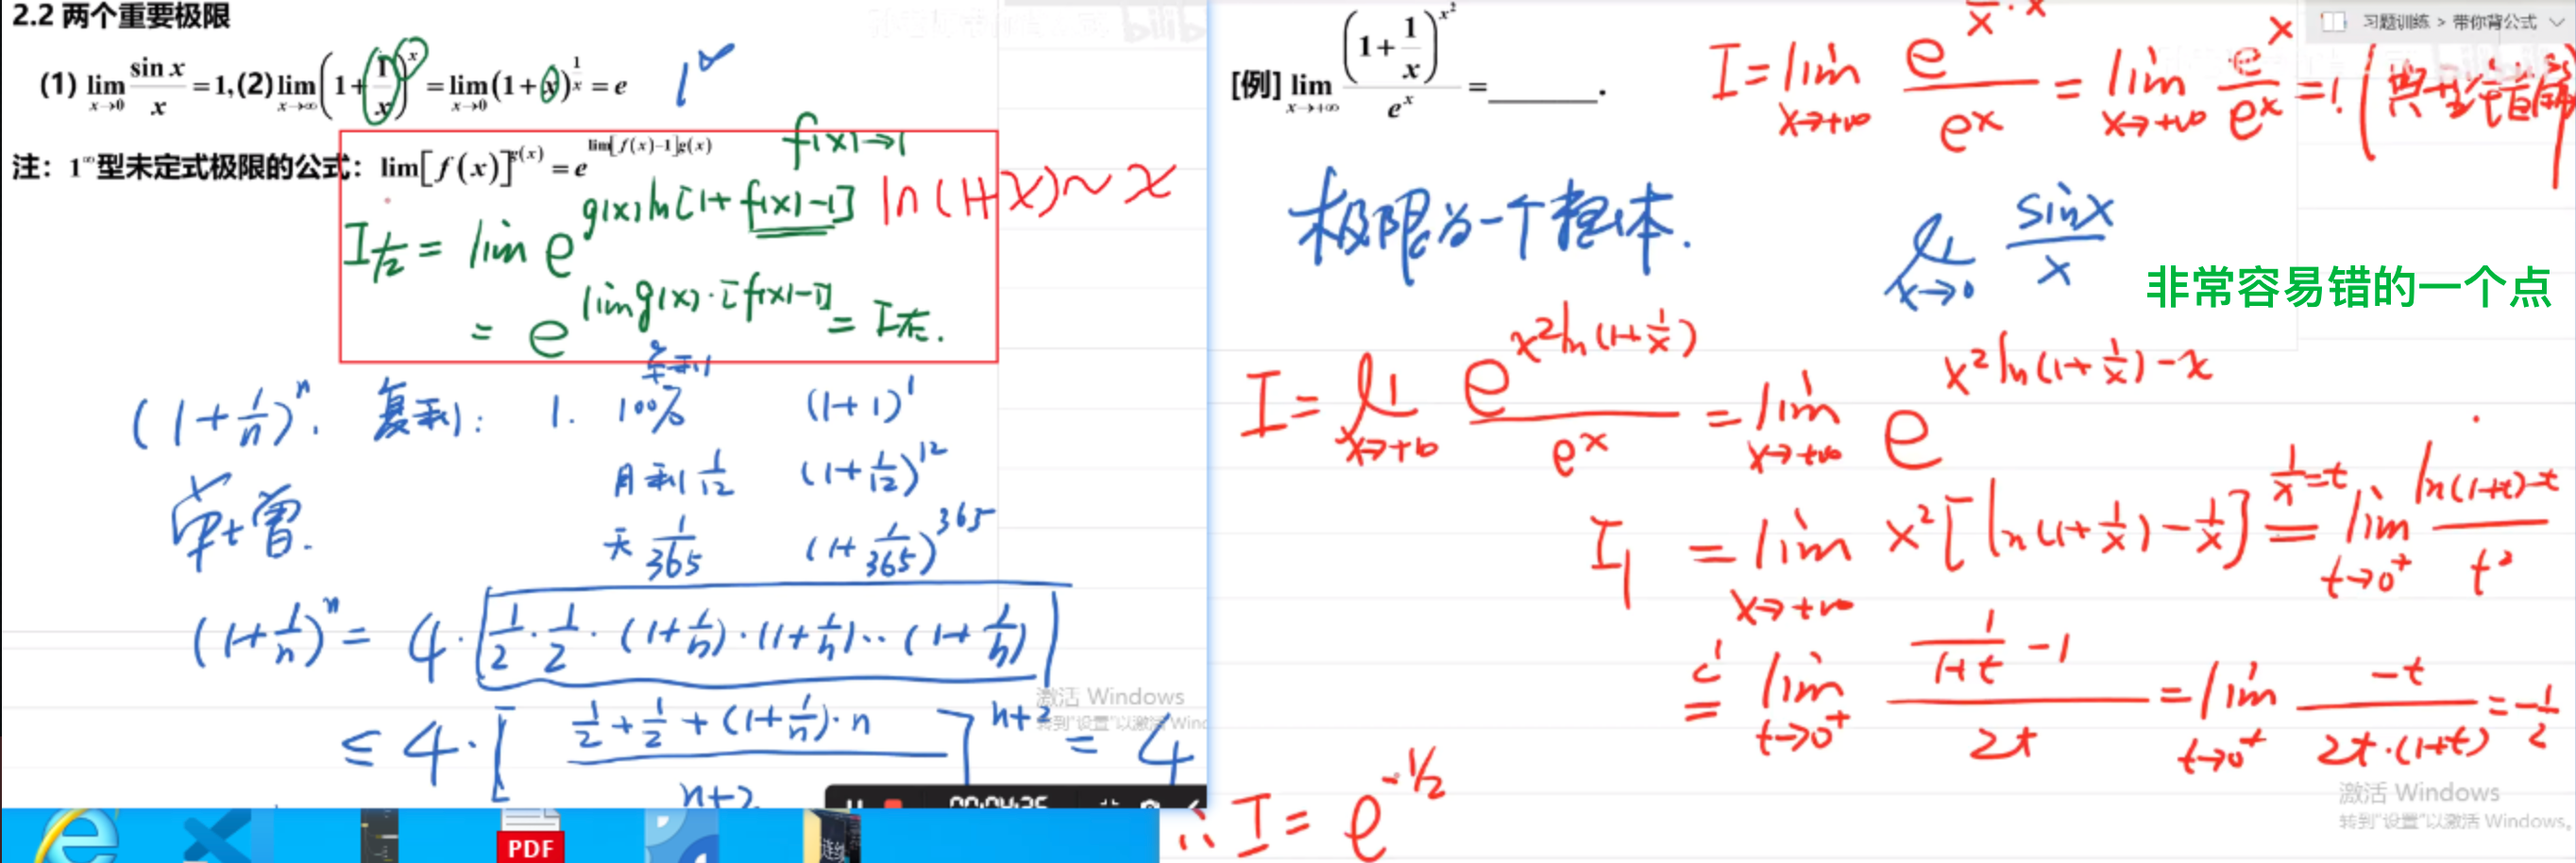 2.2 两个重要极限
(1) lim x→0 sin x / x = 1, (2) lim x→∞ (1 + 1/x)^x = lim x→0 (1 + x)^(1/x) = e
1^∞
注：1^∞型未定式极限的公式：lim[f(x)]^g(x) = e^(lim[f(x)−1]g(x))
f(x)→1
I左 = lim e^(g(x)ln[1+f(x)−1])
ln(1+x)~x
= e^(lim g(x)·[f(x)−1]) = I右.
(1+1/n)^n. 复利: 1. 年利 100% (1+1)^1
月利 1/12 (1+1/12)^12
天 1/365 (1+1/365)^365
单增.
(1+1/n)^n = 4·[1/2·1/2·(1+1/n)·(1+1/n)··(1+1/n)]
≤ 4·[(1/2+1/2+(1+1/n)·n)/(n+2)]^(n+2) = 4
激活 Windows
转到"设置"以激活 Wind
00:04:35
PDF
连线
习题训练 > 带你背公式
[例] lim x→+∞ (1 + 1/x)^(x²) / e^x = ______.
I = lim x→+∞ e^(1/x·x²) / e^x = lim x→+∞ e^x / e^x = 1. (典型错解
极限为一个整体.
lim x→0 sinx / x
非常容易错的一个点
I = lim x→+∞ e^(x²ln(1+1/x)) / e^x = lim x→+∞ e^(x²ln(1+1/x)−x)
I₁ = lim x→+∞ x²[ln(1+1/x)−1/x] 1/x=t = lim t→0⁺ (ln(1+t)−t) / t²
= lim t→0⁺ (1/(1+t) −1) / 2t = lim t→0⁺ −t / (2t·(1+t)) = −1/2
∴ I = e^(−1/2)
激活 Windows
转到"设置"以激活 Windows。